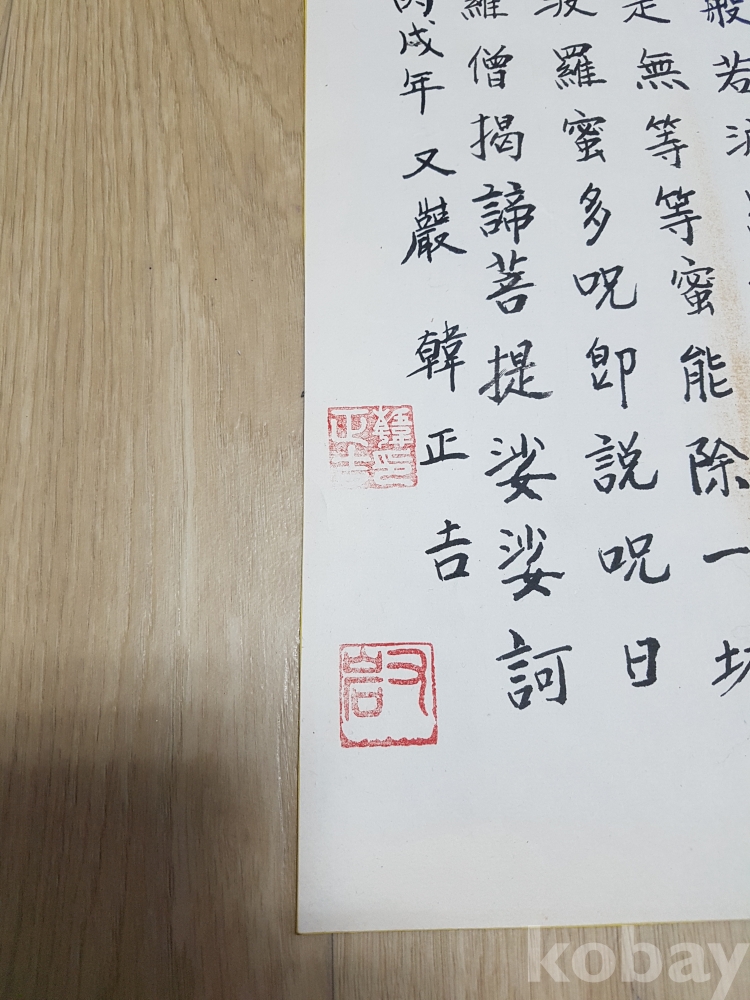 般若
是無等等蜜能除一切
波羅蜜多呪卽說呪曰
羅僧揭諦菩提娑娑訶
戌年 又巖 韓正吉
韓印正吉
又岩
kobay